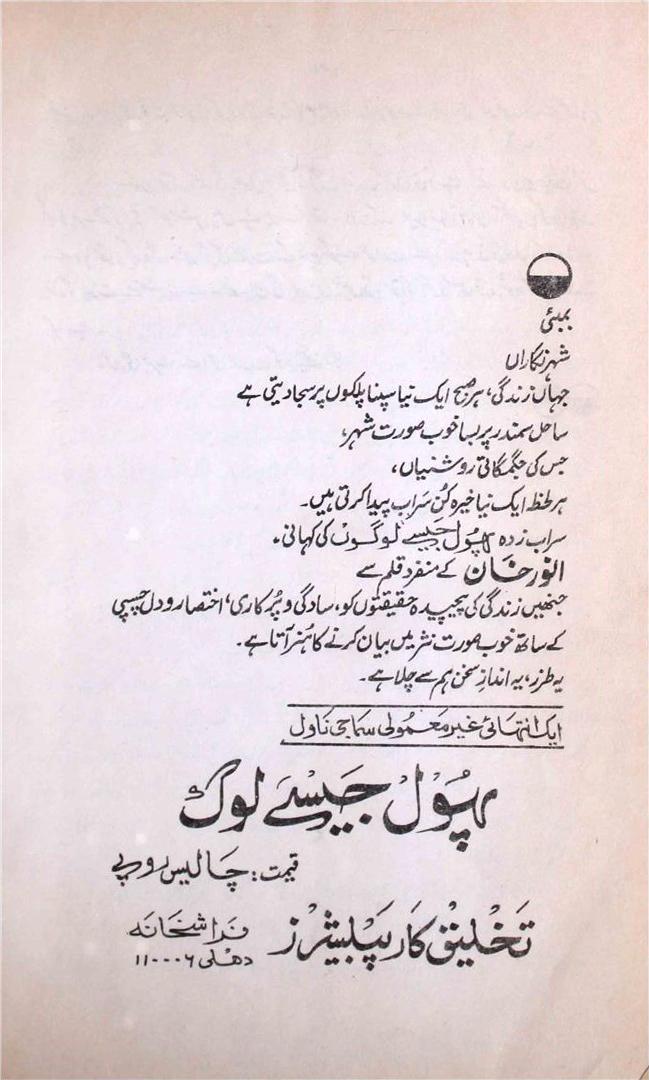 بمبئی
شہر نگاراں
جہاں زندگی، ہر صبح ایک نیا سپنا پلکوں پر سجا دیتی ہے
ساحل سمندر پر بسا خوب صورت شہر،
جس کی جگمگاتی روشنیاں،
ہر لحظہ ایک نیا خیرہ کن سَراب پیدا کرتی ہیں۔
سراب زدہ پھول جیسے لوگوں کی کہانی۔
انور خان کے منفرد قلم سے
جنھیں زندگی کی پیچیدہ حقیقتوں کو، سادگی و پُرکاری، اختصار و دل چسپی
کے ساتھ خوب صورت نثر میں بیان کرنے کا ہُنر آتا ہے۔
یہ طرز، یہ اندازِ سخن ہم سے چلا ہے۔
ایک انتہائی غیر معمولی سماجی ناول
پھول جیسے لوگ
قیمت: چالیس روپے
تخلیق کار پبلیشرز
فراشخانہ
دھلی ۱۱۰۰۰۶